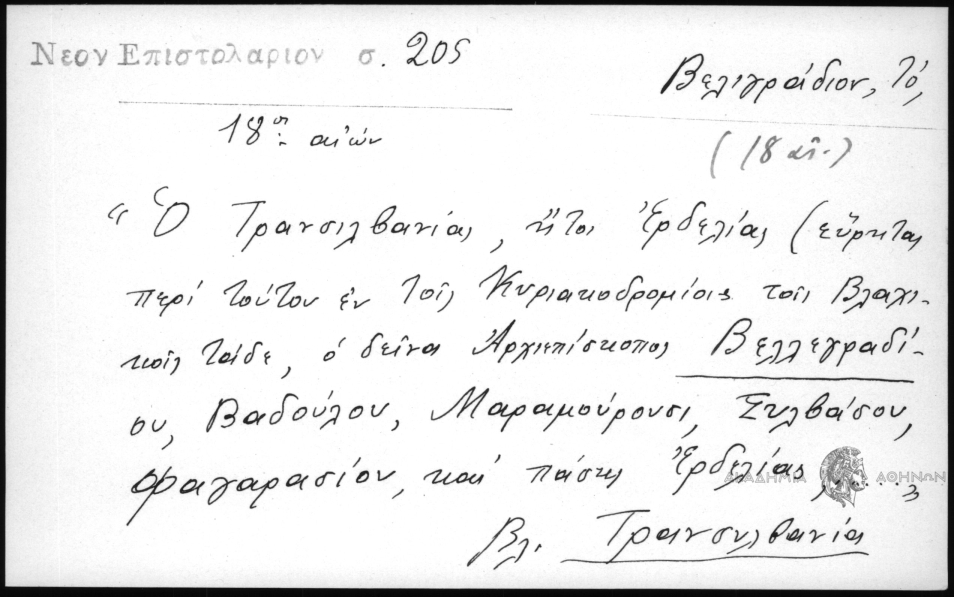 Νεον Επιστολαριον σ. 205
Βελιγράδιον, τό,
18ος αἰών
(18 αἰ.)
“ Ὁ Τρανσιλβανίας, ἤτοι Ἐρδελίας (εὕρηται
περί τούτου ἐν τοῖς Κυριακοδρομίοις τοῖς Βλαχι-
κοῖς τάδε, ὁ δεῖνα Ἀρχιεπίσκοπος Βελλεγραδί-
ου, Βαδούλου, Μαραμούρουσι, Συλβάσου,
Φαγαρασίου, καί πάσης Ἐρδελίας, ....”
ΑΚΑΔΗΜΙΑ ΑΘΗΝΩΝ
Βλ. Τρανσυλβανία